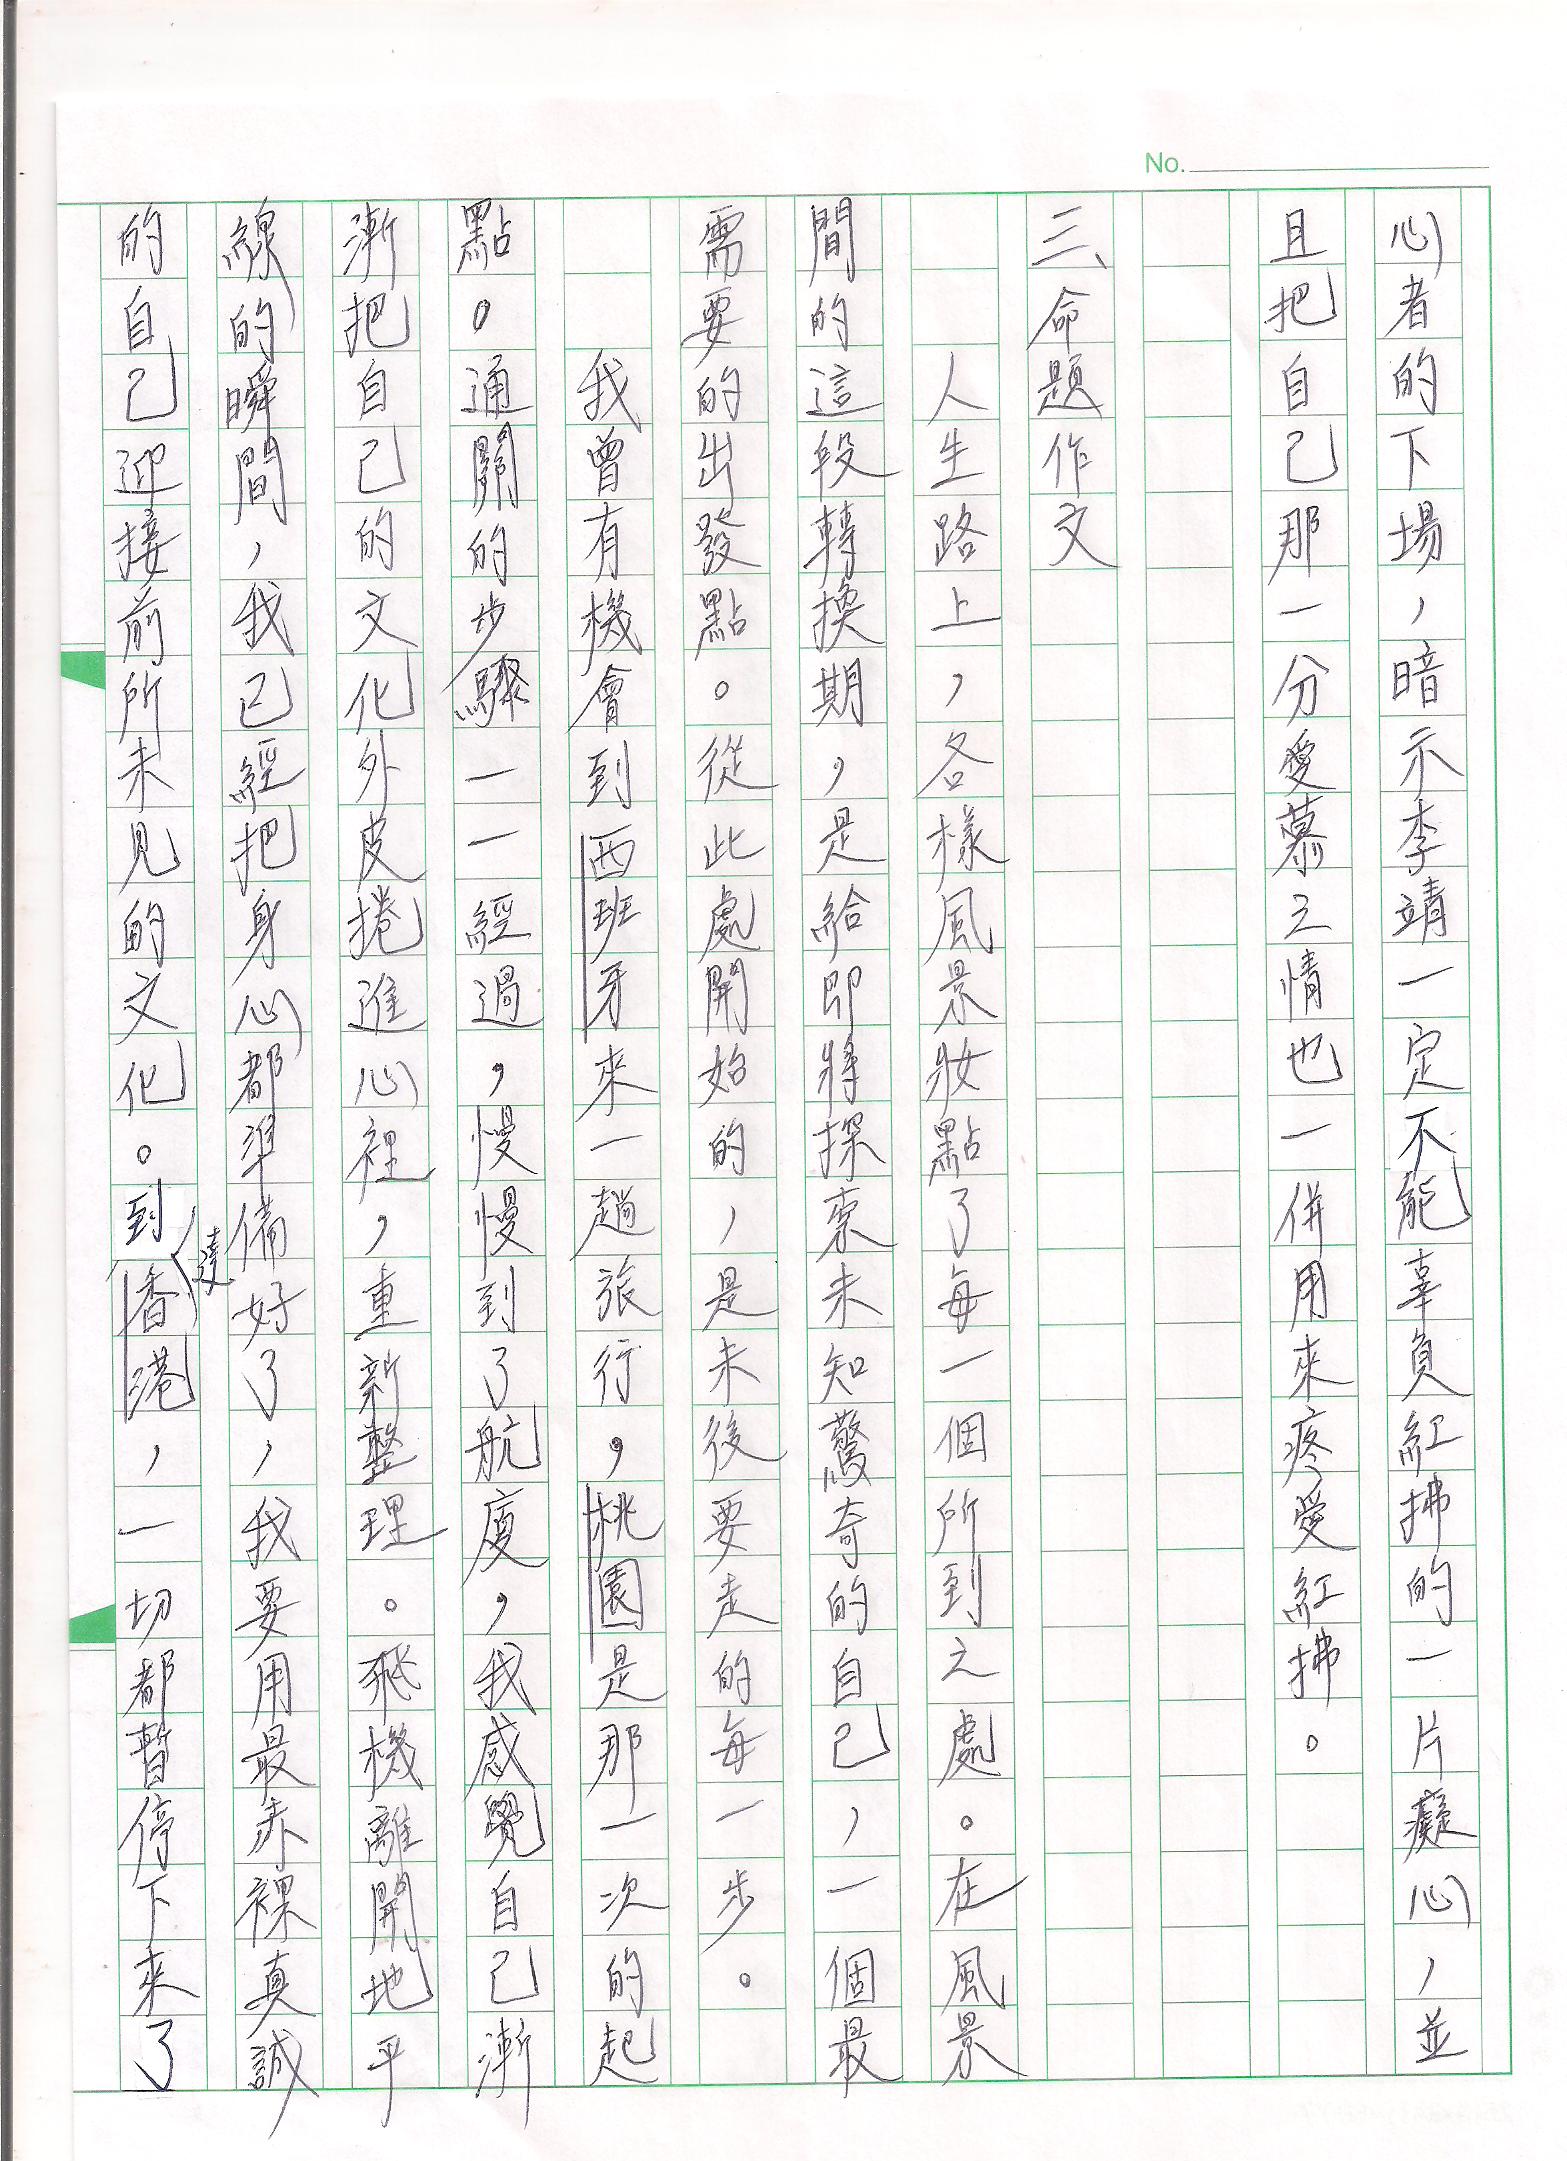 No.
心者的下場，暗示李靖一定不能辜負紅拂的一片癡心，並
且把自己那一分愛慕之情也一併用來疼愛紅拂。
三、命題作文
人生路上，各樣風景妝點了每一個所到之處。在風景
間的這段轉換期，是給即將探索未知驚奇的自己，一個最
需要的出發點。從此處開始的，是未後要走的每一步。
我曾有機會到西班牙來一趟旅行，桃園是那一次的起
點。通關的步驟一一經過，慢慢到了航廈，我感覺自己漸
漸把自己的文化外皮捲進心裡，重新整理。飛機離開地平
線的瞬間，我已經把身心都準備好了，我要用最赤裸真誠
的自己迎接前所未見的文化。到達香港，一切都暫停下來了